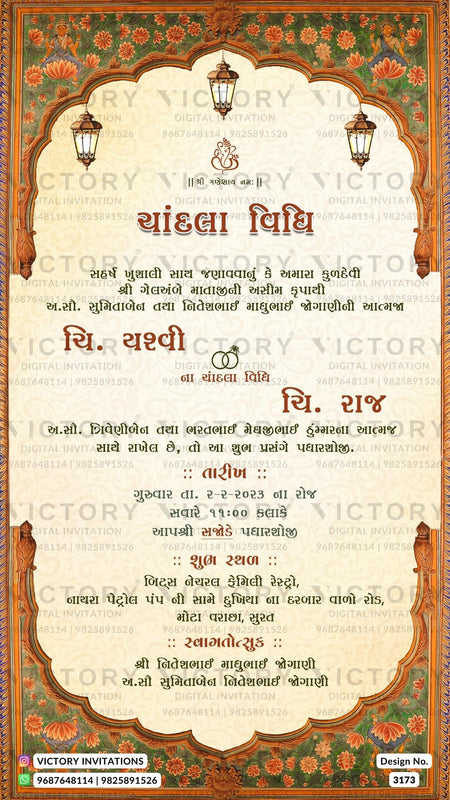 || શ્રી ગણેશાય નમઃ ||
ચાંદલા વિધિ
સહર્ષ ખુશાલી સાથ જણાવવાનું કે અમારા કુળદેવી
શ્રી ગેલઅંબે માતાજીની અસીમ કૃપાથી
અ.સૌ. સુમિતાબેન તથા નિતેશભાઈ માધુભાઈ જોગાણીની આત્મજા
ચિ. યશ્વી
ના ચાંદલા વિધિ
ચિ. રાજ
અ.સૌ. ત્રિવેણીબેન તથા ભરતભાઈ મેઘજીભાઈ હુંમ્મરના આત્મજ
સાથે રાખેલ છે, તો આ શુભ પ્રસંગે પધારશોજી.
:: તારીખ ::
ગુરુવાર તા. ૨-૨-૨૦૨૩ ના રોજ
સવારે ૧૧:૦૦ કલાકે
આપશ્રી સજોડે પધારશોજી
:: શુભ સ્થળ ::
બિટ્સ નેચરલ ફેમિલી રેસ્ટ્રો,
નાયરા પેટ્રોલ પંપ ની સામે દુખિયા ના દરબાર વાળો રોડ,
મોટા વરાછા, સુરત
:: સ્વાગતોત્સુક ::
શ્રી નિતેશભાઈ માધુભાઈ જોગાણી
અ.સૌ સુમિતાબેન નિતેશભાઈ જોગાણી
VICTORY INVITATIONS
9687648114 | 9825891526
Design No.
3173
VICTORY
DIGITAL INVITATION
9687648114 | 9825891526